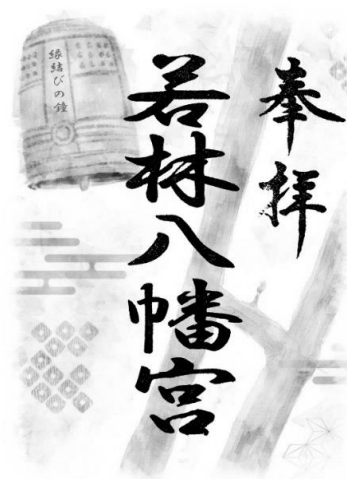 奉拝
若林八幡宮
縁結びの鐘